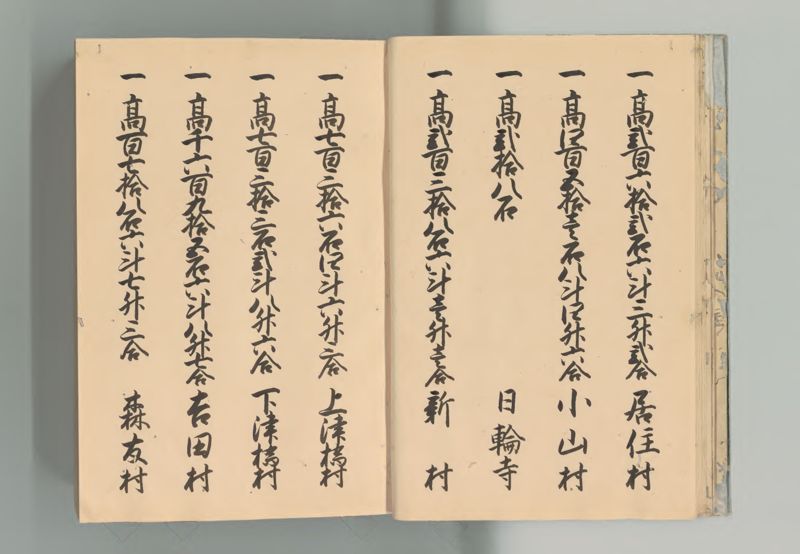 一 高弐百六拾弐石六斗三升弐合 居住村
一 高四百五拾壱石八斗四升六合 小山村
一 高弐拾八石 日輪寺
一 高弐百三拾八石六斗壱升壱合 新村
一 高七百三拾六石四斗六升三合 上津橋村
一 高七百三拾三石弐斗八升六合 下津橋村
一 高千六百九拾五石六斗八升七合 吉田村
一 高百七拾八石六斗七升三合 森友村